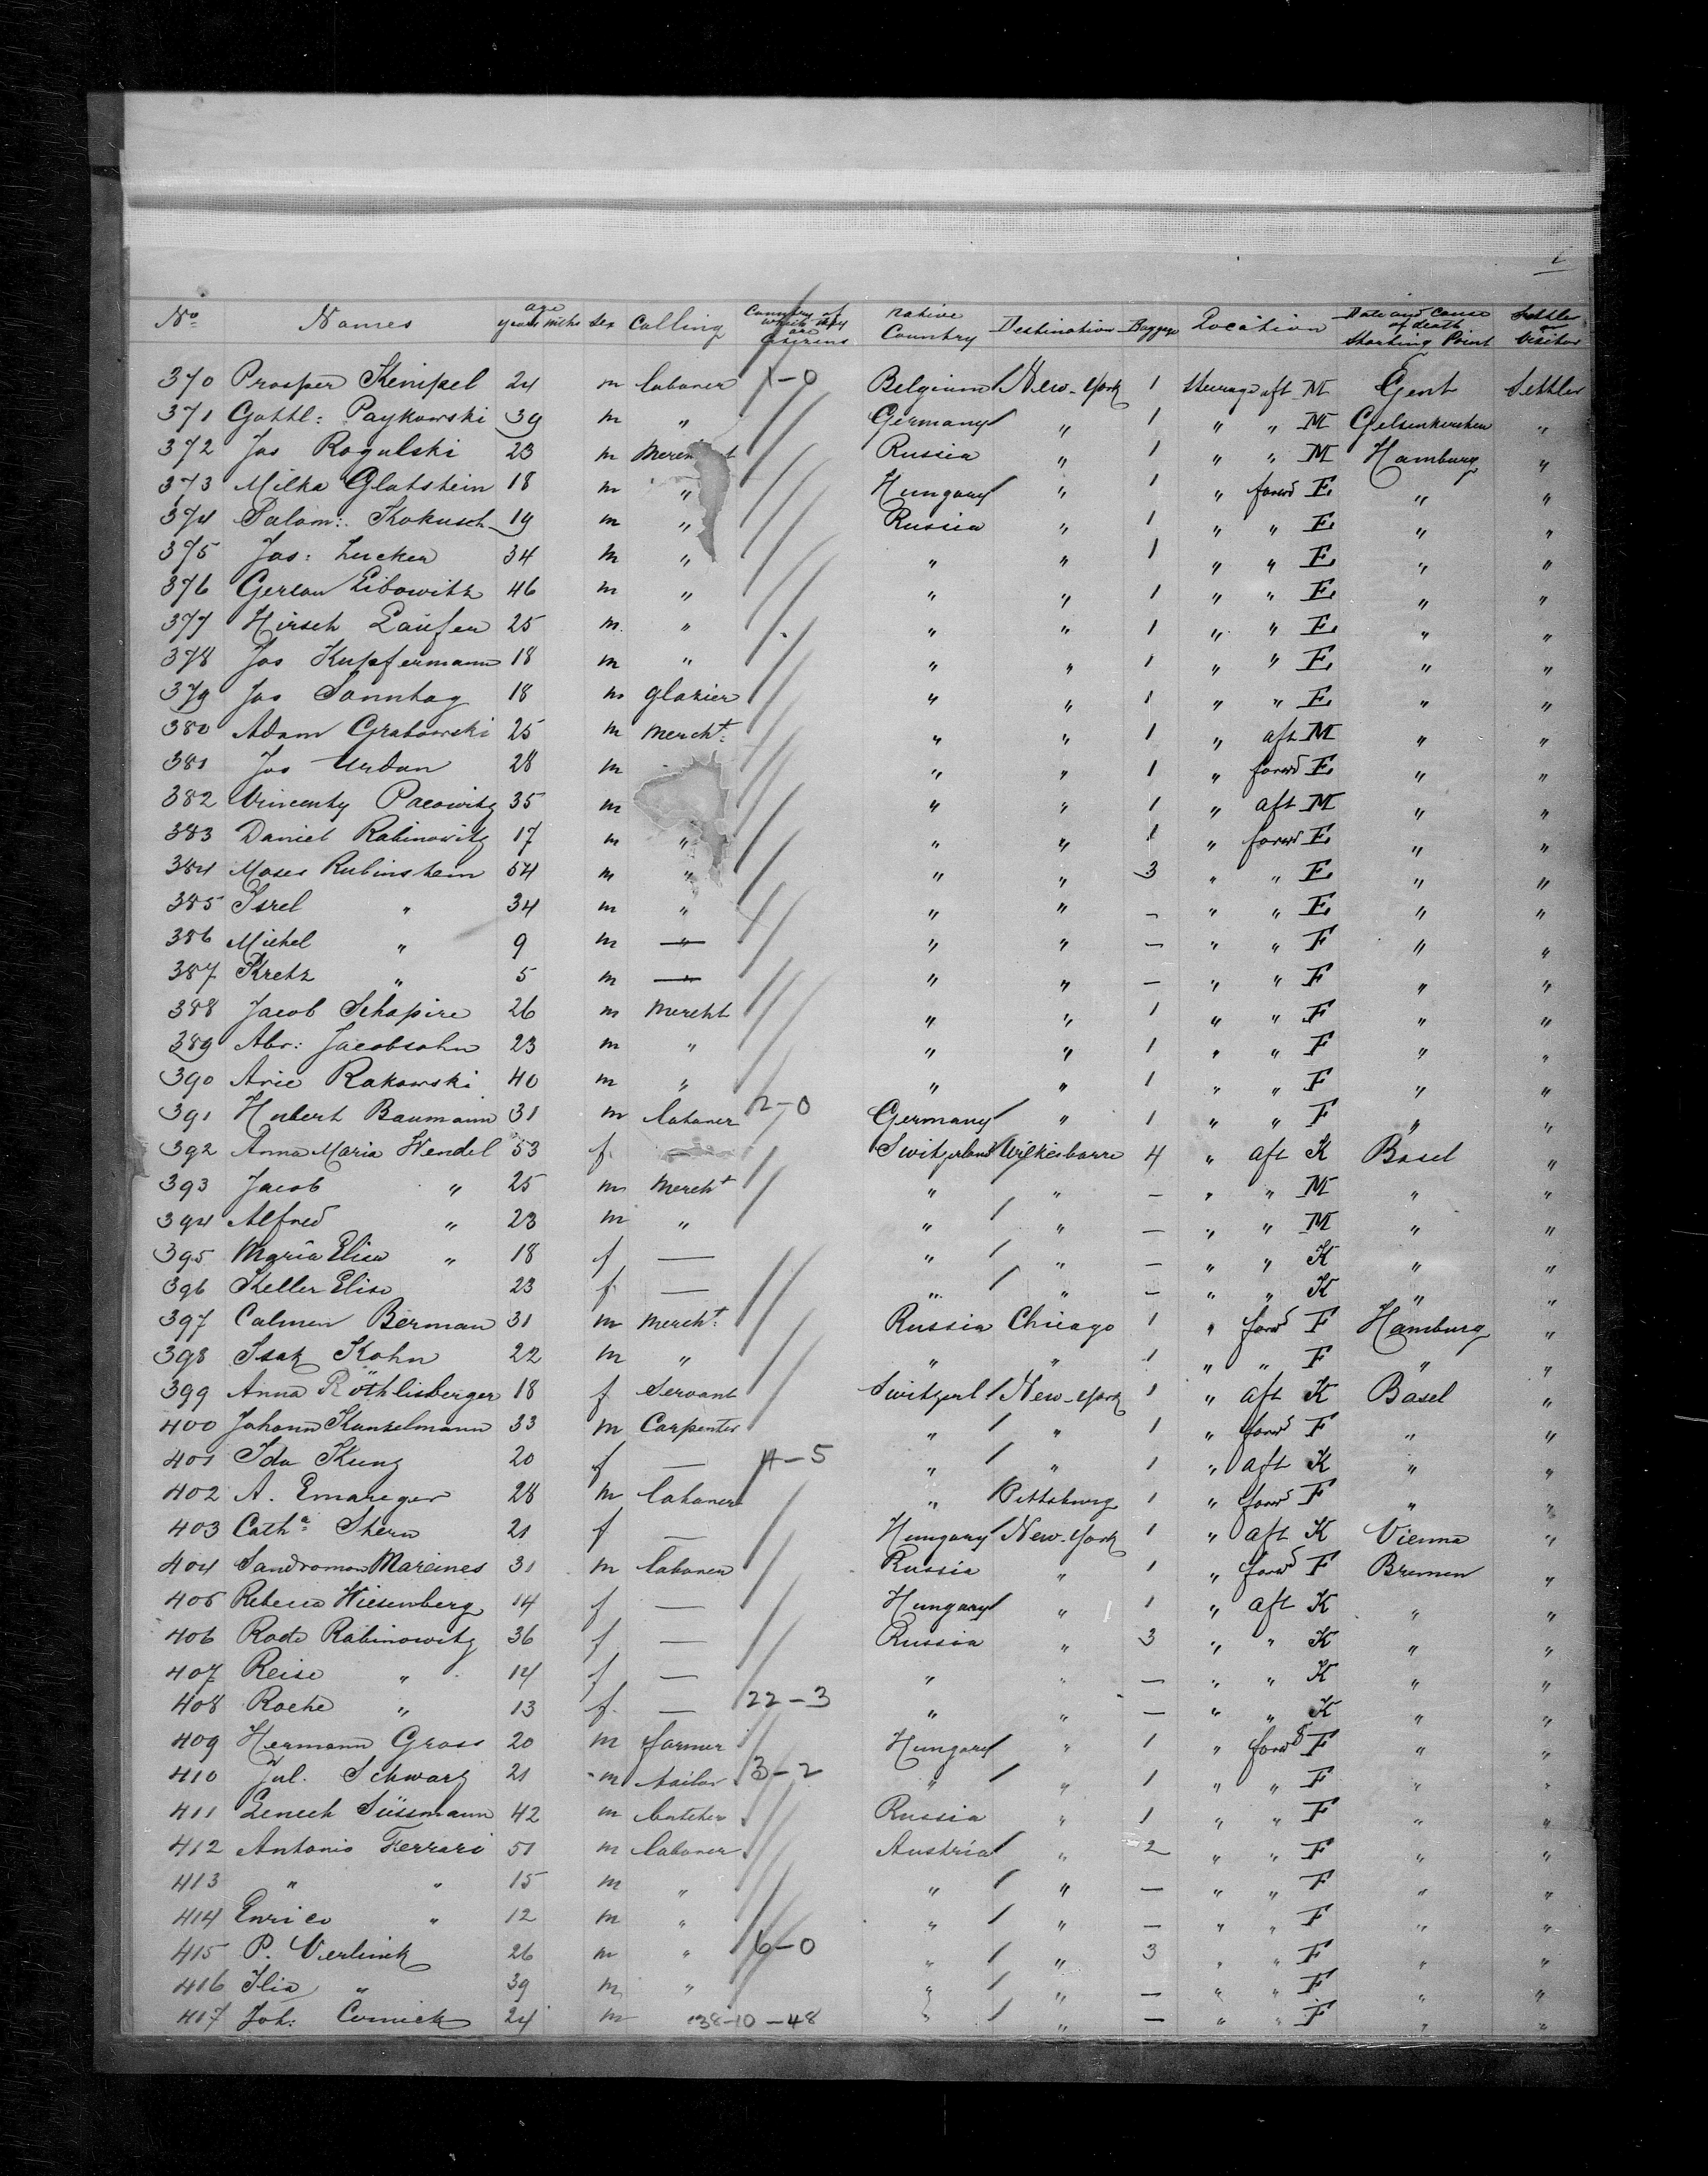 No Names age years mths Sex Calling Country of which they are Citizens Native Country Destination Baggage Location Date and Cause of death Starting Point Settler or Visitor
370 Prosper Kempel 24 m labourer 1-0 Belgium New-York 1 Steerage aft M Gent Settler
371 Gottl: Paykowski 39 m " Germany " 1 " " M Gelsenkirchen "
372 Jos Rogulski 23 m Russia " 1 " " M Hamburg "
373 Milka Glatstein 18 m " Hungary " 1 " forwd E " "
374 Salom: Kokusch 19 m " Russia " 1 " " E " "
375 Jos: Lucker 34 m " " " 1 " " E " "
376 Gerson Libowitz 46 m " " " 1 " " E " "
377 Hirsch Laufer 25 m " " " 1 " " E " "
378 Jos Kupfermann 18 m " " " 1 " " E " "
379 Jos Sonntag 18 m glazier " " 1 " " E " "
380 Adam Grabowski 25 m Mercht: " " 1 " aft M " "
381 Jos Urdan 28 m " " 1 " forwd E " "
382 Vincenty Pacowitz 35 m " " 1 " aft M " "
383 Daniel Rabinowitz 17 m " " " 1 " forwd E " "
384 Moses Rubinstein 54 m " " " 3 " " E " "
385 Isrel " 34 m " " " - " " E " "
386 Michel " 9 m — " " - " " F " "
387 Kretz " 5 m — " " - " " F " "
388 Jacob Schapire 26 m Mercht " " 1 " " F " "
389 Abr: Jacobsohn 23 m " " " 1 " " F " "
390 Arie Rakowski 40 m " " " 1 " " F " "
391 Hubert Baumann 31 m labourer 2-0 Germany " 1 " " F " "
392 Anna Maria Wendel 53 f Switzerland Wilkesbarre 4 " aft K Basel "
393 Jacob " 25 m Mercht " " - " " M " "
394 Alfred " 23 m " " " - " " M " "
395 Maria Elisa " 18 f — " " - " " K " "
396 Keller Elise 23 f — " " - " " K " "
397 Calmen Berman 31 m Mercht: Russia Chicago 1 " forwd F Hamburg "
398 Isak Kohn 22 m " " " 1 " " F " "
399 Anna Röthlisberger 18 f Servant Switzerl New-York 1 " aft K Basel "
400 Johann Kunzelmann 33 m Carpenter " " 1 " forwd F " "
401 Ida Kung 20 f — 4-5 " " 1 " aft K " "
402 A. Emareger 28 m labourer " Pittsburg 1 " forwd F " "
403 Catha Stern 21 f — Hungary New-York 1 " aft K Vienna "
404 Sandroman Mareines 31 m labourer Russia " 1 " forwd F Bremen "
405 Rebecca Wiesenberg 14 f — Hungary " 1 " aft K " "
406 Rode Rabinowitz 36 f — Russia " 3 " " K " "
407 Reise " 14 f — " " - " " K " "
408 Roche " 13 f — 22-3 " " - " " K " "
409 Hermann Gross 20 m farmer Hungary " 1 " forwd F " "
410 Jul. Schwarz 21 m tailor 3-2 " " 1 " " F " "
411 Zenech Süssmann 42 m butcher Russia " 1 " " F " "
412 Antonio Ferrari 51 m labourer Austria " 2 " " F " "
413 " " 15 m " " " - " " F " "
414 Enrico " 12 m " " " - " " F " "
415 P. Verlinik 26 m " 6-0 " " 3 " " F " "
416 Ilia " 39 m " " " - " " F " "
417 Joh: Cornick 24 m 38-10-48 " " - " " F " "